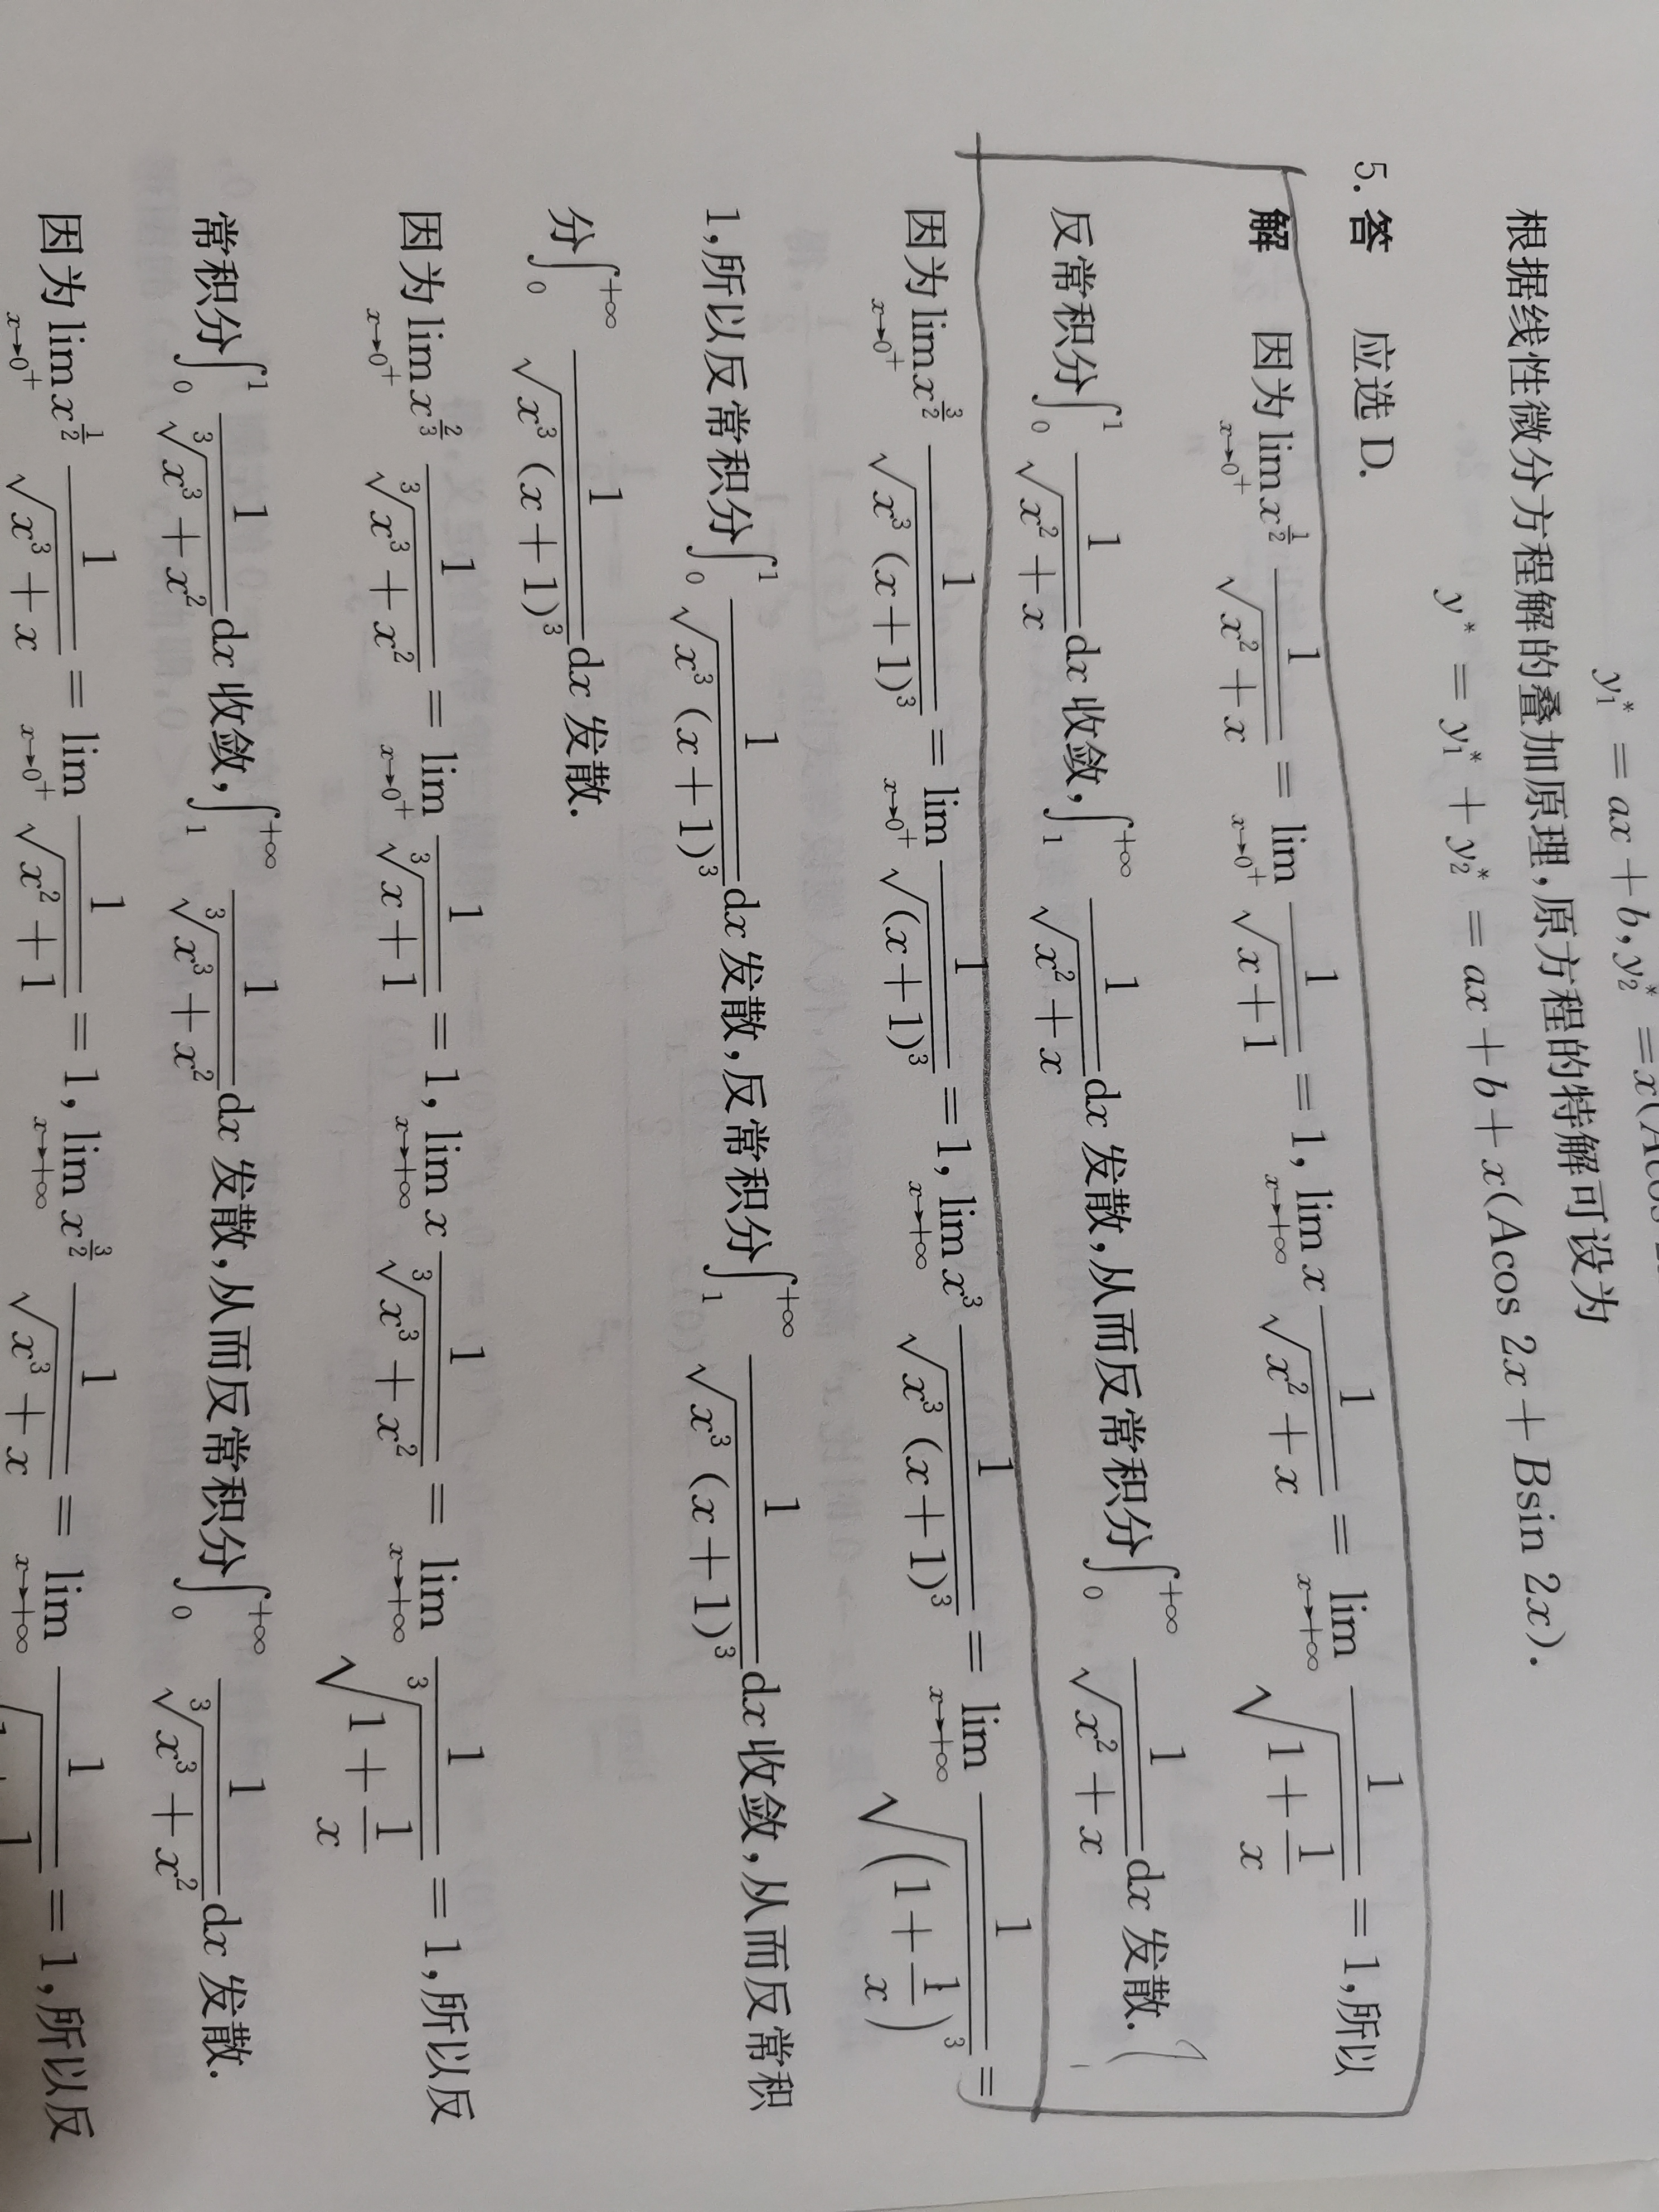 y₁* = ax + b, y₂* = x(Acos
根据线性微分方程解的叠加原理,原方程的特解可设为
y* = y₁* + y₂* = ax + b + x(Acos 2x + Bsin 2x).
5. 答 应选 D.
解 因为 lim_{x→0⁺} x^{1/2} 1/√(x² + x) = lim_{x→0⁺} 1/√(x + 1) = 1, lim_{x→+∞} x 1/√(x² + x) = lim_{x→+∞} 1/√(1 + 1/x) = 1,所以
反常积分∫₀¹ 1/√(x² + x) dx 收敛,∫₁^{+∞} 1/√(x² + x) dx 发散,从而反常积分∫₀^{+∞} 1/√(x² + x) dx 发散.
因为 lim_{x→0⁺} x^{3/2} 1/√(x³(x + 1)³) = lim_{x→0⁺} 1/√((x + 1)³) = 1, lim_{x→+∞} x³ 1/√(x³(x + 1)³) = lim_{x→+∞} 1/√((1 + 1/x)³) =
1,所以反常积分∫₀¹ 1/√(x³(x + 1)³) dx 发散,反常积分∫₁^{+∞} 1/√(x³(x + 1)³) dx 收敛,从而反常积
分∫₀^{+∞} 1/√(x³(x + 1)³) dx 发散.
因为 lim_{x→0⁺} x^{2/3} 1/∛(x³ + x²) = lim_{x→0⁺} 1/∛(x + 1) = 1, lim_{x→+∞} x 1/∛(x³ + x²) = lim_{x→+∞} 1/∛(1 + 1/x) = 1,所以反
常积分∫₀¹ 1/∛(x³ + x²) dx 收敛,∫₁^{+∞} 1/∛(x³ + x²) dx 发散,从而反常积分∫₀^{+∞} 1/∛(x³ + x²) dx 发散.
因为 lim_{x→0⁺} x^{1/2} 1/√(x³ + x) = lim_{x→0⁺} 1/√(x² + 1) = 1, lim_{x→+∞} x^{3/2} 1/√(x³ + x) = lim_{x→+∞} 1/√(1 + 1 = 1,所以反